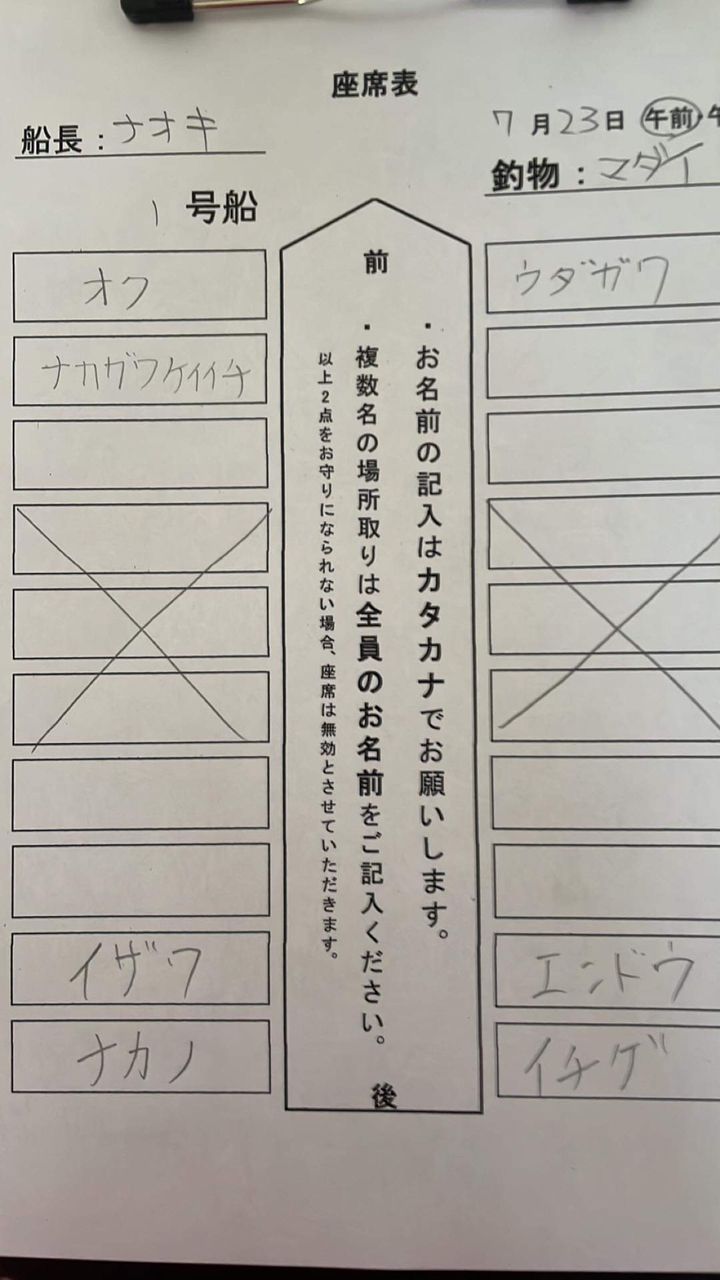 座席表
船長：ナオキ
7月23日 午前・午
釣物：マダイ
1 号船
前
・お名前の記入はカタカナでお願いします。
・複数名の場所取りは全員のお名前をご記入ください。
以上2点をお守りになられない場合、座席は無効とさせていただきます。
後
オク
ナカガワケイイチ
イザワ
ナカノ
ウダガワ
エンドウ
イチゲ